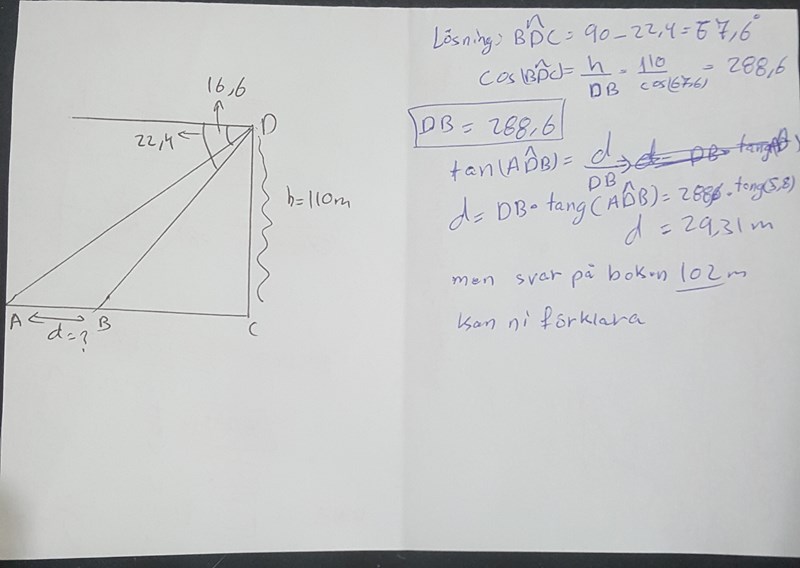 16,6
22,4
D
h=110m
A
d=?
B
C
Lösning: BD̂C = 90-22,4=67,6°
cos(BD̂C)= h/DB = 110/cos(67,6) = 288,6
DB = 288,6
tan(AD̂B)= d/DB ⇒
d= DB• tang(AD̂B)= 288,6 • tang(5,8)
d = 29,31 m
men svar på boken 102 m
kan ni förklara